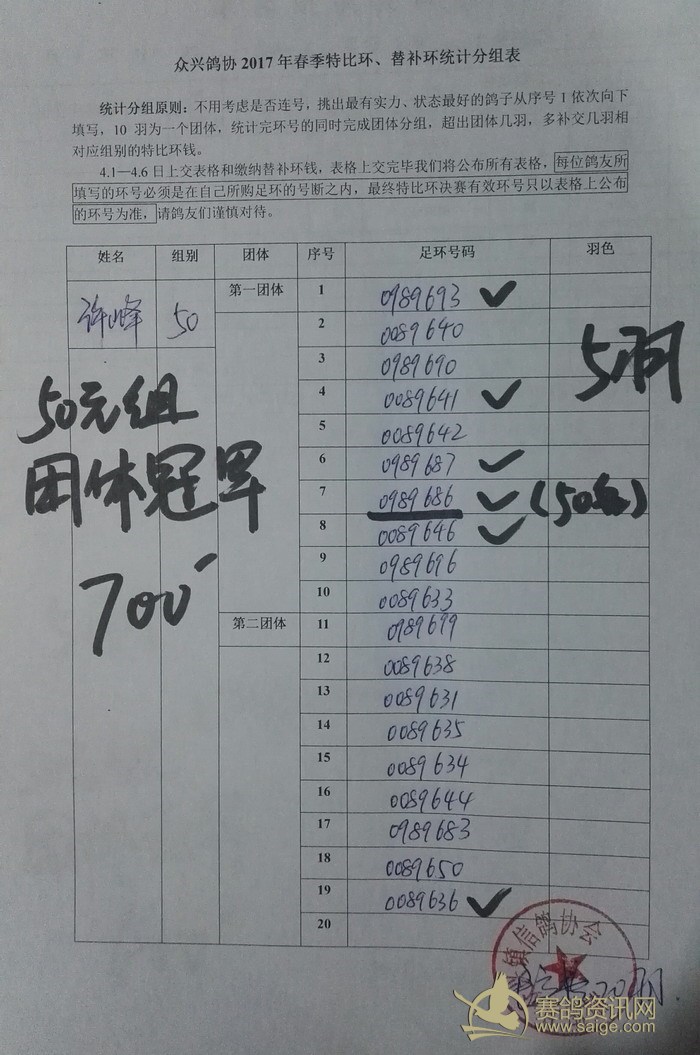 众兴鸽协 2017 年春季特比环、替补环统计分组表
统计分组原则：不用考虑是否连号，挑出最有实力、状态最好的鸽子从序号 1 依次向下
填写，10 羽为一个团体，统计完环号的同时完成团体分组，超出团体几羽，多补交几羽相
对应组别的特比环钱。
4.1—4.6 日上交表格和缴纳替补环钱，表格上交完毕我们将公布所有表格，每位鸽友所
填写的环号必须是在自己所购足环的号断之内，最终特比环决赛有效环号只以表格上公布
的环号为准，请鸽友们谨慎对待。
姓名 组别 团体 序号 足环号码 羽色
许峰 50 第一团体 1 0989693 ✓
2 0089640
3 0989690
4 0089641 ✓
5 0089642
6 0989687 ✓
7 0989686 ✓
8 0089646 ✓
9 0989696
10 0089633
第二团体 11 0989699
12 0089638
13 0089631
14 0089635
15 0089634
16 0089644
17 0989683
18 0089650
19 0089636 ✓
20
5羽
50元组
团体冠军
700
镇信鸽协会
20羽
赛鸽资讯网
www.saige.com